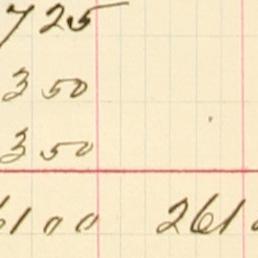 725
350
350
6100 261